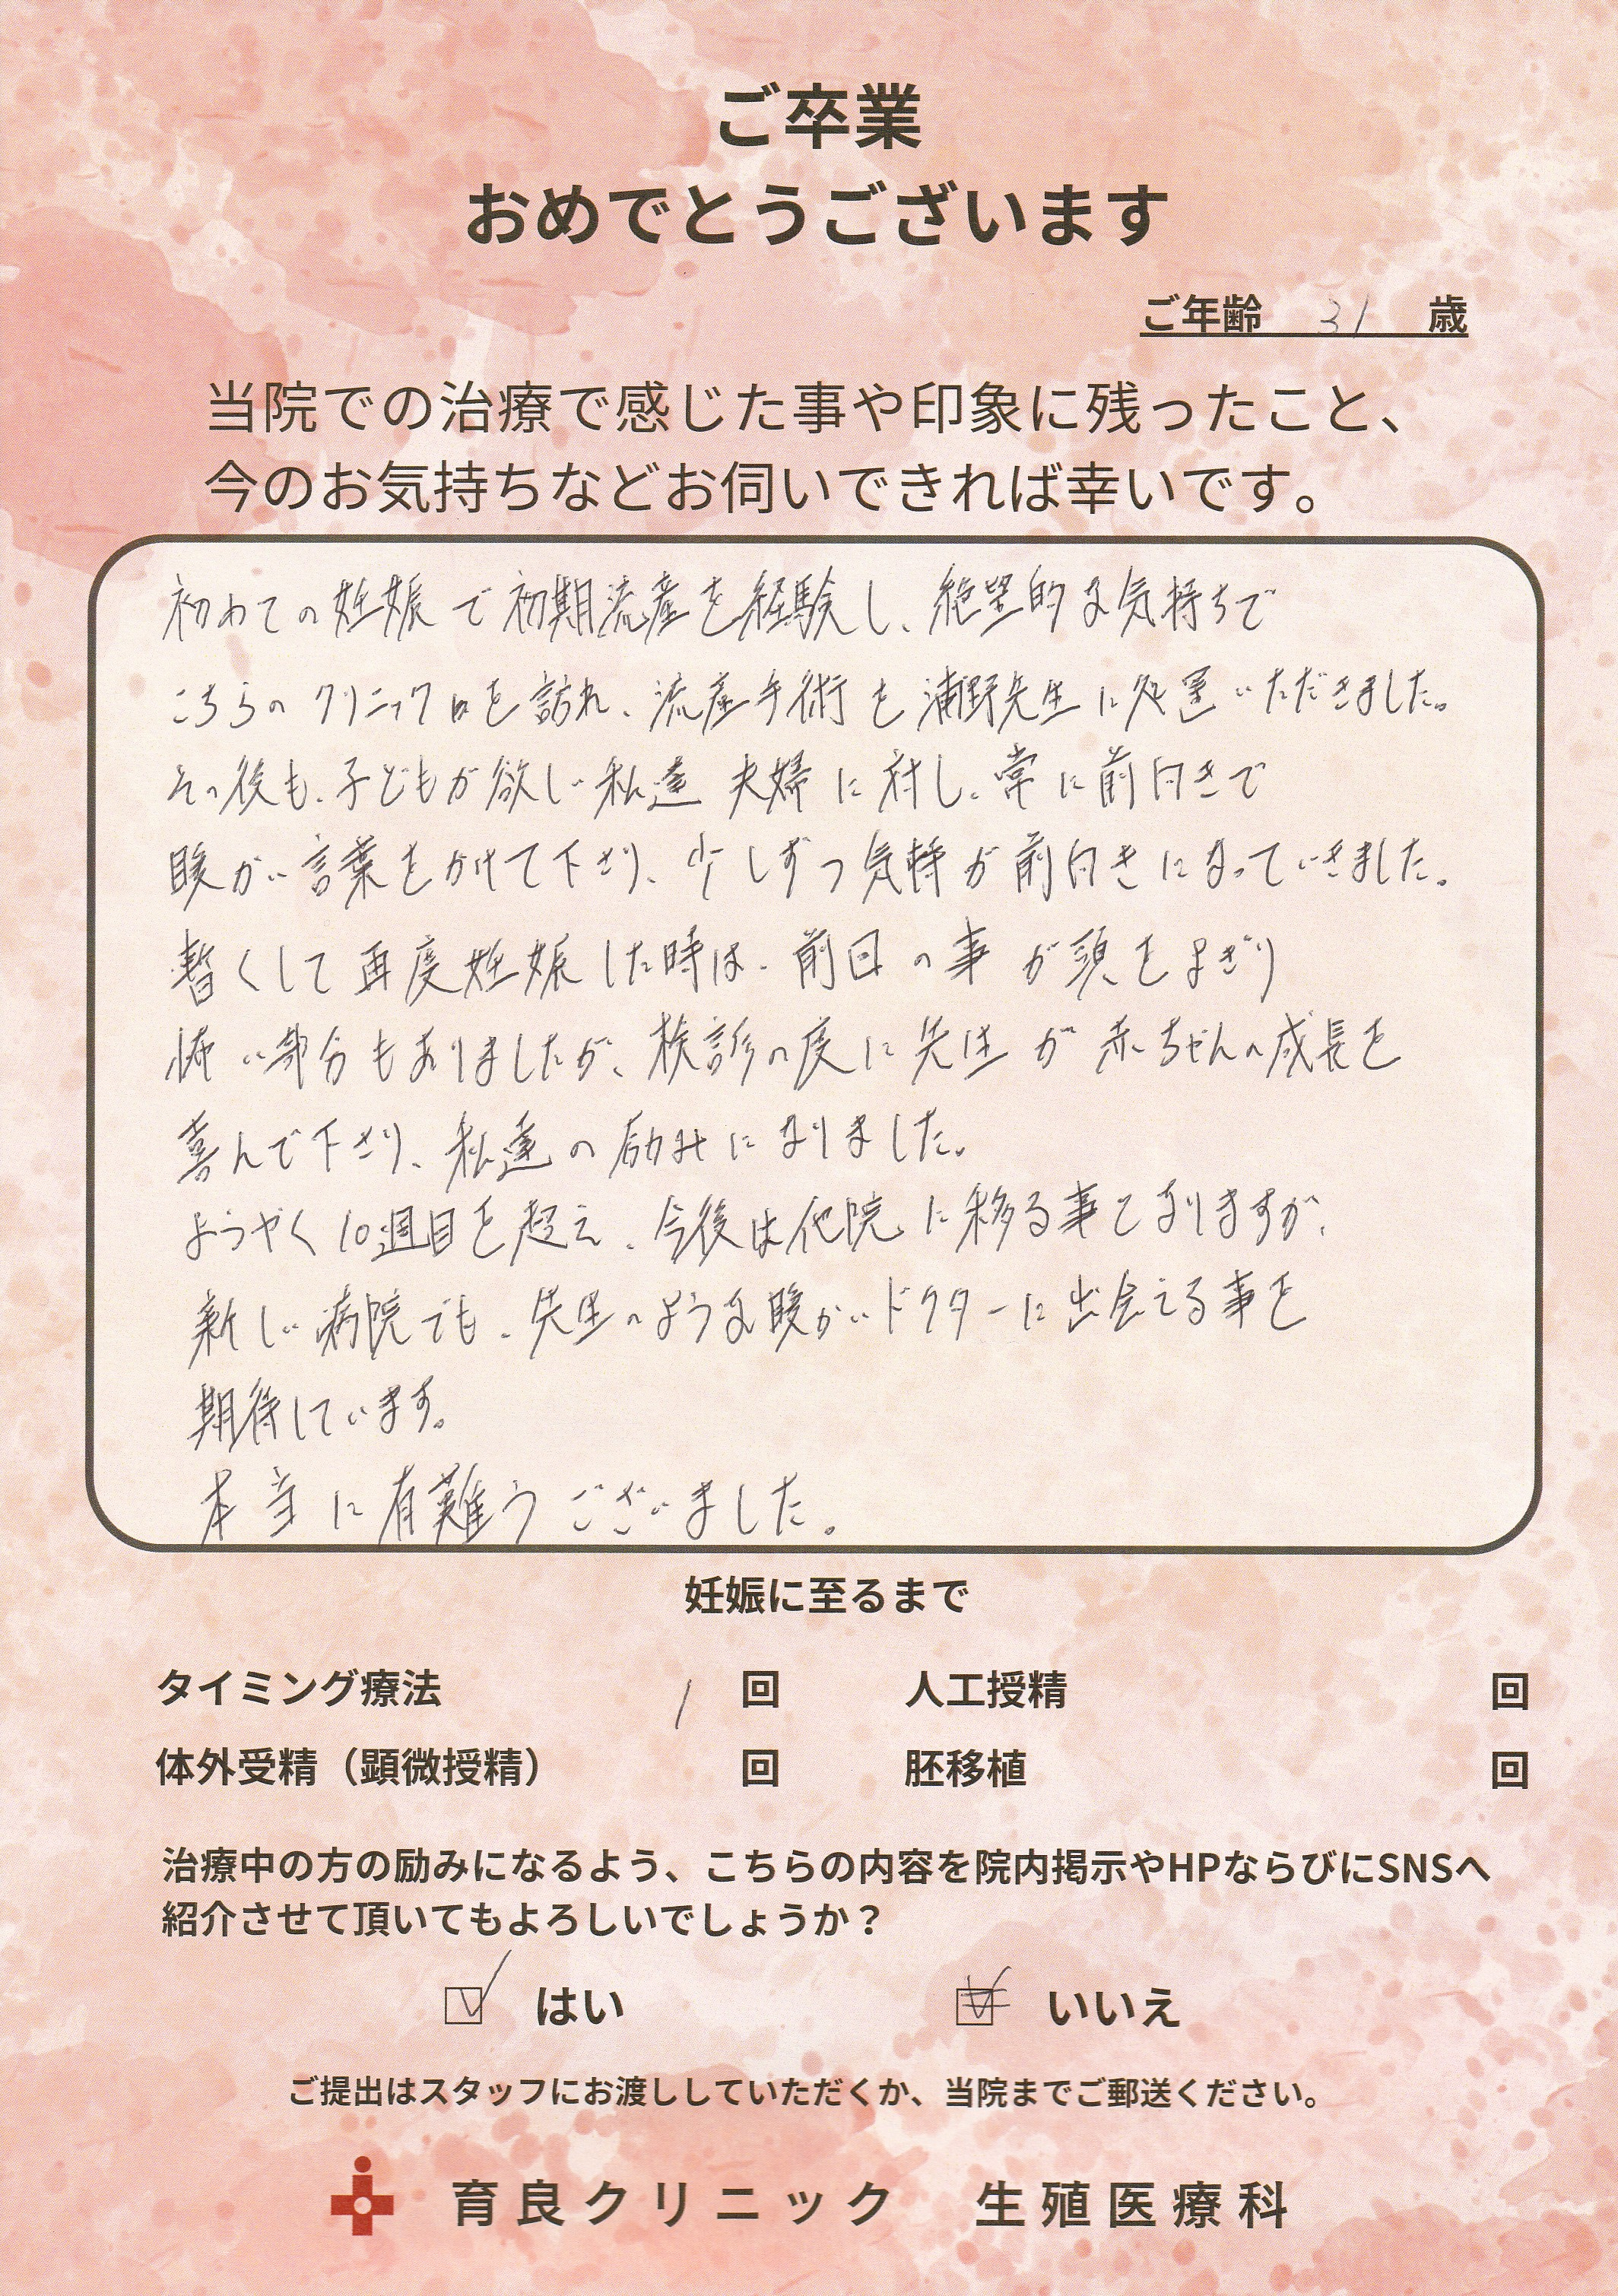 ご卒業
おめでとうございます
ご年齢 31 歳
当院での治療で感じた事や印象に残ったこと、
今のお気持ちなどお伺いできれば幸いです。
初めての妊娠で初期流産を経験し、絶望的な気持ちで
こちらのクリニックを訪れ、流産手術も浦野先生に処置いただきました。
その後も、子どもが欲しい私達夫婦に対し、常に前向きで
暖かい言葉をかけて下さり、少しずつ気持が前向きになっていきました。
暫くして再度妊娠した時は、前回の事が頭をよぎり
怖い部分もありましたが、検診の度に先生が赤ちゃんの成長を
喜んで下さり、私達の励みになりました。
ようやく10週目を超え、今後は他院に移る事となりますが、
新しい病院でも、先生のような暖かいドクターに出会える事を
期待しています。
本当に有難うございました。
妊娠に至るまで
タイミング療法 1 回 人工授精 回
体外受精（顕微授精） 回 胚移植 回
治療中の方の励みになるよう、こちらの内容を院内掲示やHPならびにSNSへ
紹介させて頂いてもよろしいでしょうか？
はい いいえ
ご提出はスタッフにお渡ししていただくか、当院までご郵送ください。
育良クリニック 生殖医療科